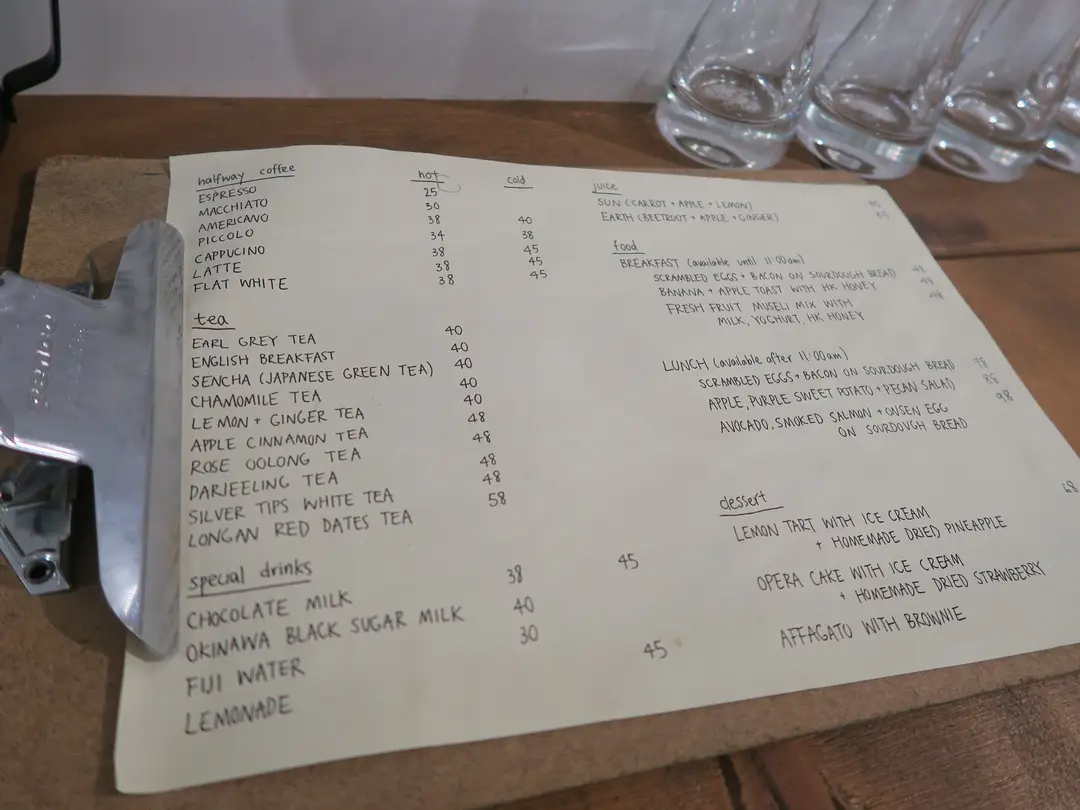 halfway coffee hot cold
ESPRESSO 25
MACCHIATO 30
AMERICANO 38 40
PICCOLO 34 38
CAPPUCINO 38 45
LATTE 38 45
FLAT WHITE 38 45
tea
EARL GREY TEA 40
ENGLISH BREAKFAST 40
SENCHA (JAPANESE GREEN TEA) 40
CHAMOMILE TEA 40
LEMON + GINGER TEA 40
APPLE CINNAMON TEA 48
ROSE OOLONG TEA 48
DARJEELING TEA 48
SILVER TIPS WHITE TEA 48
LONGAN RED DATES TEA 58
special drinks
CHOCOLATE MILK 38 45
OKINAWA BLACK SUGAR MILK 40
FIJI WATER 30
LEMONADE 45
juice
SUN (CARROT + APPLE + LEMON)
EARTH (BEETROOT + APPLE + GINGER)
food
BREAKFAST (available until 11:00am)
SCRAMBLED EGGS + BACON ON SOURDOUGH BREAD 48
BANANA + APPLE TOAST WITH HK HONEY 48
FRESH FRUIT MUSELI MIX WITH 48
MILK, YOGHURT, HK HONEY
LUNCH (available after 11:00am)
SCRAMBLED EGGS + BACON ON SOURDOUGH BREAD 78
APPLE, PURPLE SWEET POTATO + PECAN SALAD 88
AVOCADO, SMOKED SALMON + ONSEN EGG 98
ON SOURDOUGH BREAD
dessert
LEMON TART WITH ICE CREAM 68
+ HOMEMADE DRIED PINEAPPLE
OPERA CAKE WITH ICE CREAM
+ HOMEMADE DRIED STRAWBERRY
AFFAGATO WITH BROWNIE